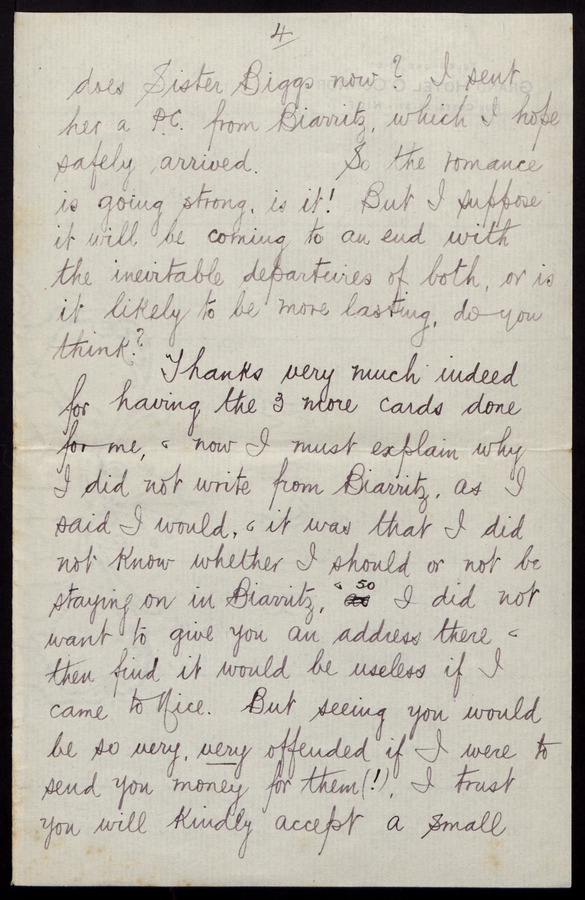 4
does Sister Biggs now? I sent
her a P.C. from Biarritz, which I hope
safely arrived. So the romance
is going strong, is it! But I suppose
it will be coming to an end with
the inevitable departures of both, or is
it likely to be more lasting, do you
think?
Thanks very much indeed
for having the 3 more cards done
for me, & now I must explain why
I did not write from Biarritz, as I
said I would, & it was that I did
not know whether I should or not be
staying on in Biarritz, & so I did not
want to give you an address there &
then find it would be useless if I
came to Nice. But seeing you would
be so very, very offended if I were to
send you money for them(!), I trust
you will kindly accept a small